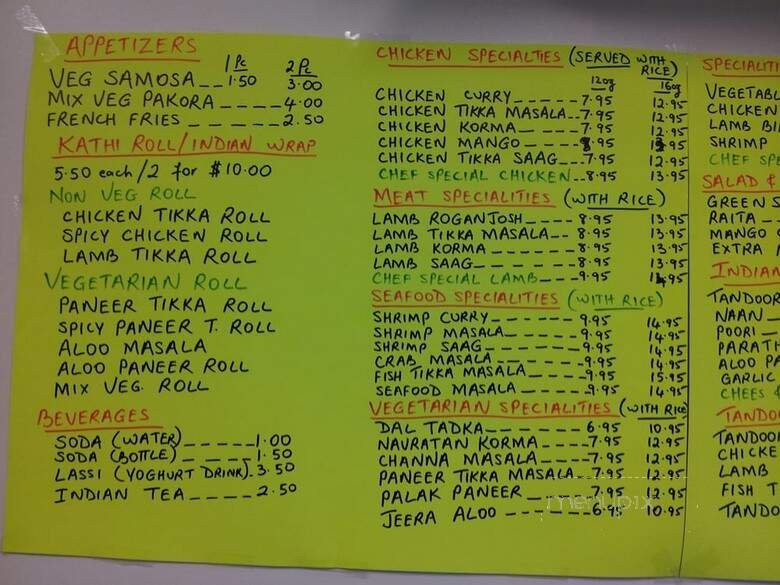 APPETIZERS
1 Pc 2 Pc
VEG SAMOSA__1.50 3.00
MIX VEG PAKORA _ _ _ _ _ 4.00
FRENCH FRIES _ _ _ _ _ 2.50
KATHI ROLL/INDIAN WRAP
5.50 each/2 for $10.00
NON VEG ROLL
CHICKEN TIKKA ROLL
SPICY CHICKEN ROLL
LAMB TIKKA ROLL
VEGETARIAN ROLL
PANEER TIKKA ROLL
SPICY PANEER T. ROLL
ALOO MASALA
ALOO PANEER ROLL
MIX VEG. ROLL
BEVERAGES
SODA (WATER)_ _ _ _ _1.00
SODA (BOTTLE)_ _ _ _ _1.50
LASSI (YOGHURT DRINK)_3.50
INDIAN TEA_ _ _ _ 2.50
CHICKEN SPECIALTIES (SERVED WITH RICE)
12oz 16oz
CHICKEN CURRY_ _ _ _ _7.95 12.95
CHICKEN TIKKA MASALA_ _7.95 12.95
CHICKEN KORMA_ _ _ _7.95 12.95
CHICKEN MANGO_ _ _ _8.95 13.95
CHICKEN TIKKA SAAG_ _7.95 12.95
CHEF SPECIAL CHICKEN_ _8.95 13.95
MEAT SPECIALITIES (WITH RICE)
LAMB ROGANJOSH_ _ _ _8.95 13.95
LAMB TIKKA MASALA_ _8.95 13.95
LAMB KORMA_ _ _ _ _8.95 13.95
LAMB SAAG_ _ _ _ _8.95 13.95
CHEF SPECIAL LAMB_ _ _9.95 14.95
SEAFOOD SPECIALITIES (WITH RICE)
SHRIMP CURRY_ _ _ _ _9.95 14.95
SHRIMP MASALA_ _ _ _9.95 14.95
SHRIMP SAAG_ _ _ _ _9.95 14.95
CRAB MASALA_ _ _ _ _9.95 14.95
FISH TIKKA MASALA_ _ _9.95 15.95
SEAFOOD MASALA_ _ _ _9.95 14.95
VEGETARIAN SPECIALITIES (WITH RICE
DAL TADKA_ _ _ _ _ _6.95 10.95
NAVRATAN KORMA_ _ _7.95 12.95
CHANNA MASALA_ _ _ _7.95 12.95
PANEER TIKKA MASALA_ _7.95 12.95
PALAK PANEER_ _ _ _7.95 12.95
JEERA ALOO_ _ _ _ _ _6.95 10.95
SPECIALITI
VEGETABL
CHICKEN
LAMB BI
SHRIMP
CHEF SPE
SALAD &
GREEN S
RAITA _
MANGO
EXTRA
INDIAN
TANDOOR
NAAN _
POORI _
PARATH
ALOO PA
GARLIC
CHEES &
TANDO
TANDOOR
CHICKE
LAMB
FISH T
TANDO
menupix